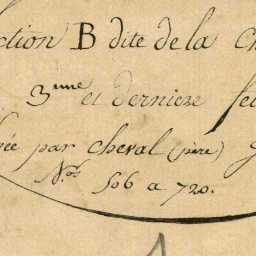 ction B dite de la Ch
3eme et derniere feu
ée par cheval (père) g
Nos 506 a 720.